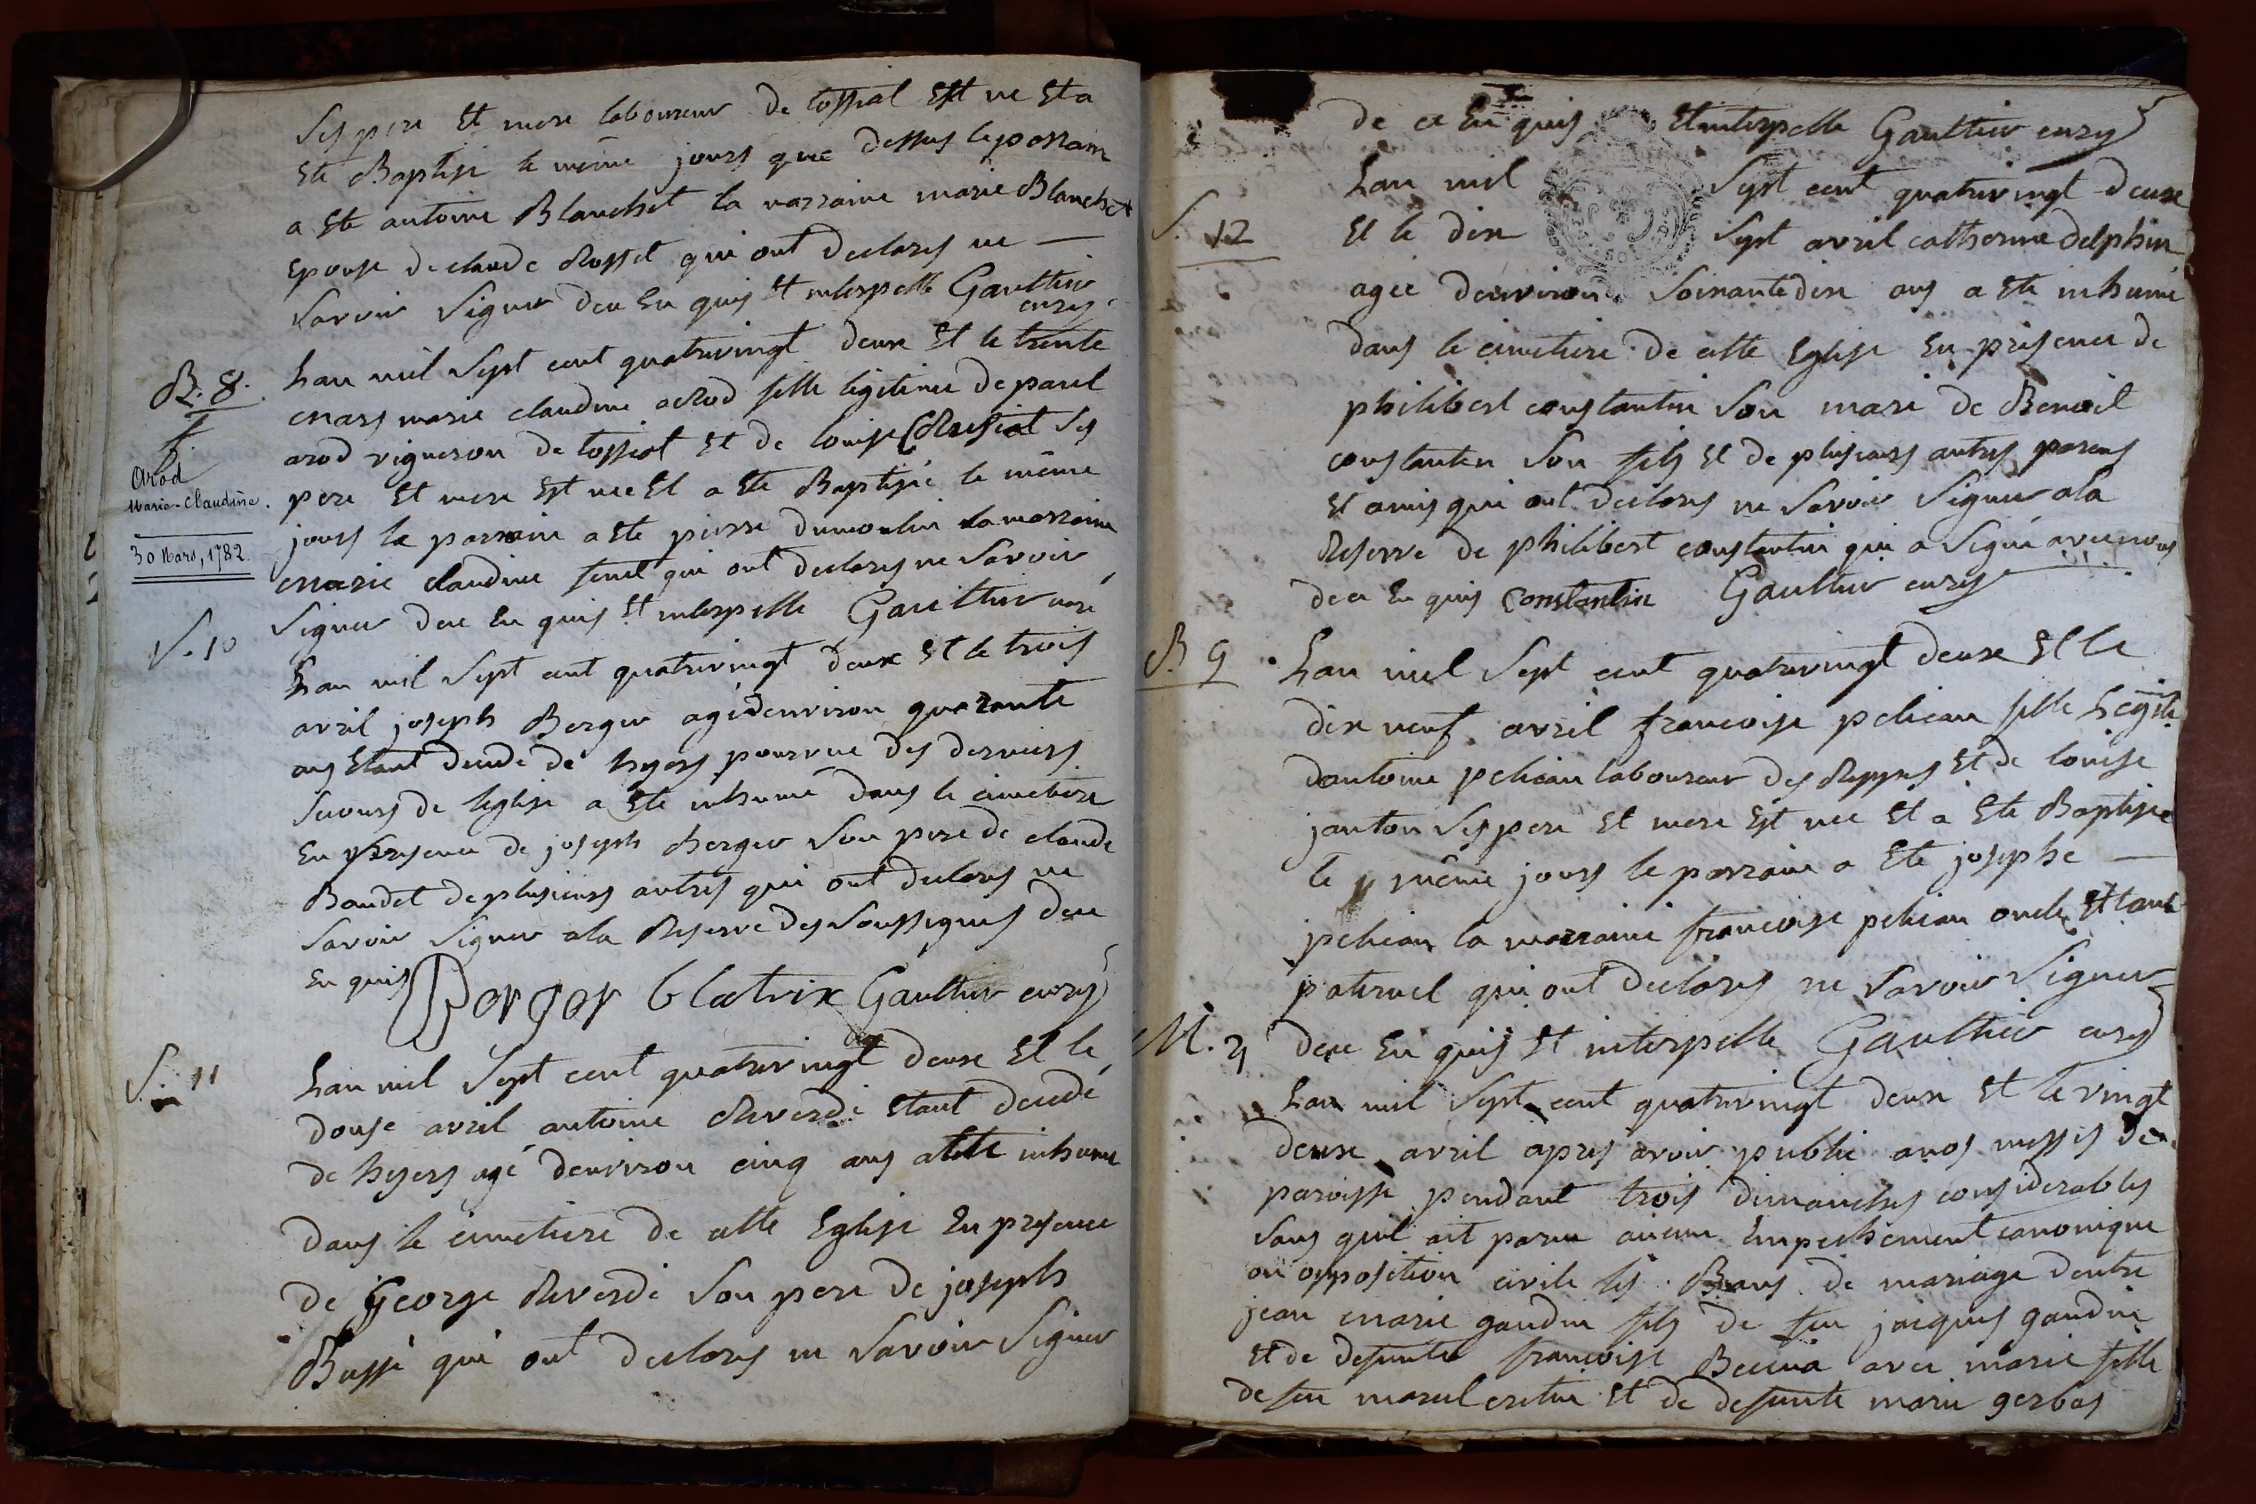 Ses pere Et mere laboureur de tossiat Est ne Et a
Ete Baptisé le même jours que dessus le parrain
a Ete antoine Blanchet la marraine marie Blanchet
Epouse de claude Rosset qui ont declarés ne —
Savoir Signer dece En quis Et interpelle Gaulthier
curé
B. 8.
Lan mil Sept cent quatrevingt deux Et le trente
mars marie claudine arod fille légitime de paul
arod vigneron de tossiat Et de louise Ses
Arod
Marie-Claudine.
30 Mars, 1782
pere Et mere Est née Et a Ete Baptisée le même
jours le parrain a Ete pierre dumoulin la marraine
marie claudine qui ont declarés ne Savoir
Signer dece En quis Et interpelle Gaulthier curé
S. 10
Lan mil Sept cent quatrevingt deux Et le trois
avril joseph Berger agé denviron quarante
ans Etant décédé dé hyers pourvue des derniers
Secours de léglise a Ete inhumé dans le cimetiere
En présence de joseph Berger Son pere de claude
Baudet de plusieurs autres qui ont declarés ne
Savoir Signer ala Reserve des Soussignés dece
En quis Berger blatrix Gaulthier curé
S. 11
Lan mil Sept cent quatrevingt deux Et le
douse avril antoine Reverdi Etant décédé
de hyers agé denviron cinq ans a Ete inhumé
dans le cimetiere de cette Eglise En présence
de George Reverdi Son pere de joseph
Bussi qui ont declarés ne Savoir Signer
de ce En quis Et interpelle Gaulthier curé
S. 12
Lan mil Sept cent quatrevingt deux
Et le dix Sept avril catherine delphin
agée denviron Soixantedix ans a Ete inhumé
dans le cimetiere de cette Eglise En présence de
philibert constantin Son mari de Benoit
constantin Son fils Et de plusieurs autres parens
Et amis qui ont declarés ne Savoir Signer ala
Reserve de philibert constantin qui a Signé avec nous
de ce En quis Constantin Gaulthier curé
B. 9
Lan mil Sept cent quatrevingt deux Et le
dix neuf avril francoise pelican fille légiti
dantoine pelican laboureur des Rippes Et de louise
janton Ses pere Et mere Est née Et a Ete Baptisée
le même jours le parraine a Ete josephe —
pelican la marraine francoise pelican oncle Et tante
paternel qui ont declarés ne Savoir Signer
dece En quis Et interpelle Gaulthier curé
M. 3
Lan mil Sept cent quatrevingt deux Et le vingt
deux avril apres avoir publié anos messes de
paroisse pendant trois dimanches considerables
Sans quil ait parue aucune Empechement canonique
ou opposition civile les Bans de mariage dentre
jean marie gaudin fils de feu jacques gaudin
Et de defunte francoise avec marie fille
de feu Et de defunte marie gerbas